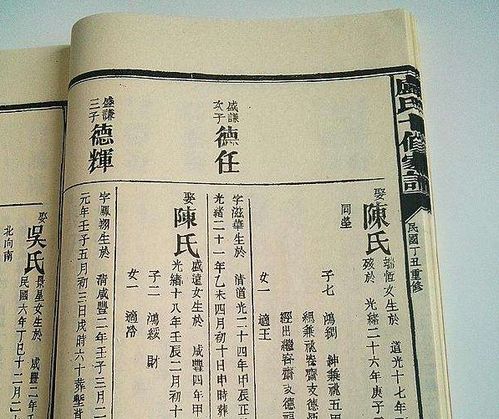 盧氏十修家譜
民國丁丑重修
娶陳氏
瑞恆女生於 道光十七年
歿於 光緒二十六年庚子
同塋
子七 鴻
紳兼祧五
組兼祧
經出繼
女一 適王
盛謙次子德任
字滋華生於 清道光二十四年甲
光緒二十一年乙未四月初十日申時葬
娶陳氏
盛遠女生於 咸豐四年甲
光緒十八年壬辰二月初十
子二 鴻綬 財
女一 適冷
盛謙三子德輝
字鳳翔生於 清咸豐二年壬子三月
元年壬子五月初三日戌時六十葬
娶吳氏
星女生於 咸豐二年
民國六年丁巳十二月二
北向南